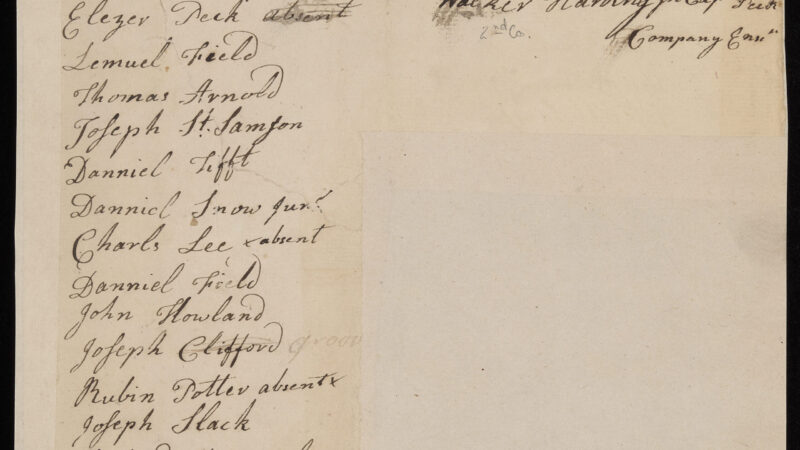 Elezer Peck absent
Lemuel Field
Thomas Arnold
Joseph St. Samson
Danniel Tifft
Danniel Snow Junr
Charls Lee x absent
Danniel Field
John Howland
Joseph Clifford
Rubin Potter absent x
Joseph Slack
Walker Harding
Peck
2nd Co.
Company Ensn